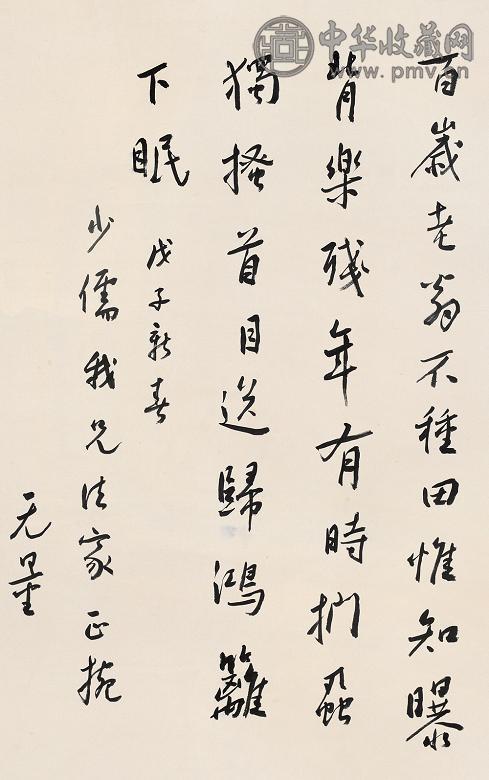 百歲老翁不種田惟知曝
背樂殘年有時捫蝨
獨搔首目送歸鴻籬
下眠
戊子新春
少儒我兄法家正捥
无量
中华收藏网
www.pmv.cn